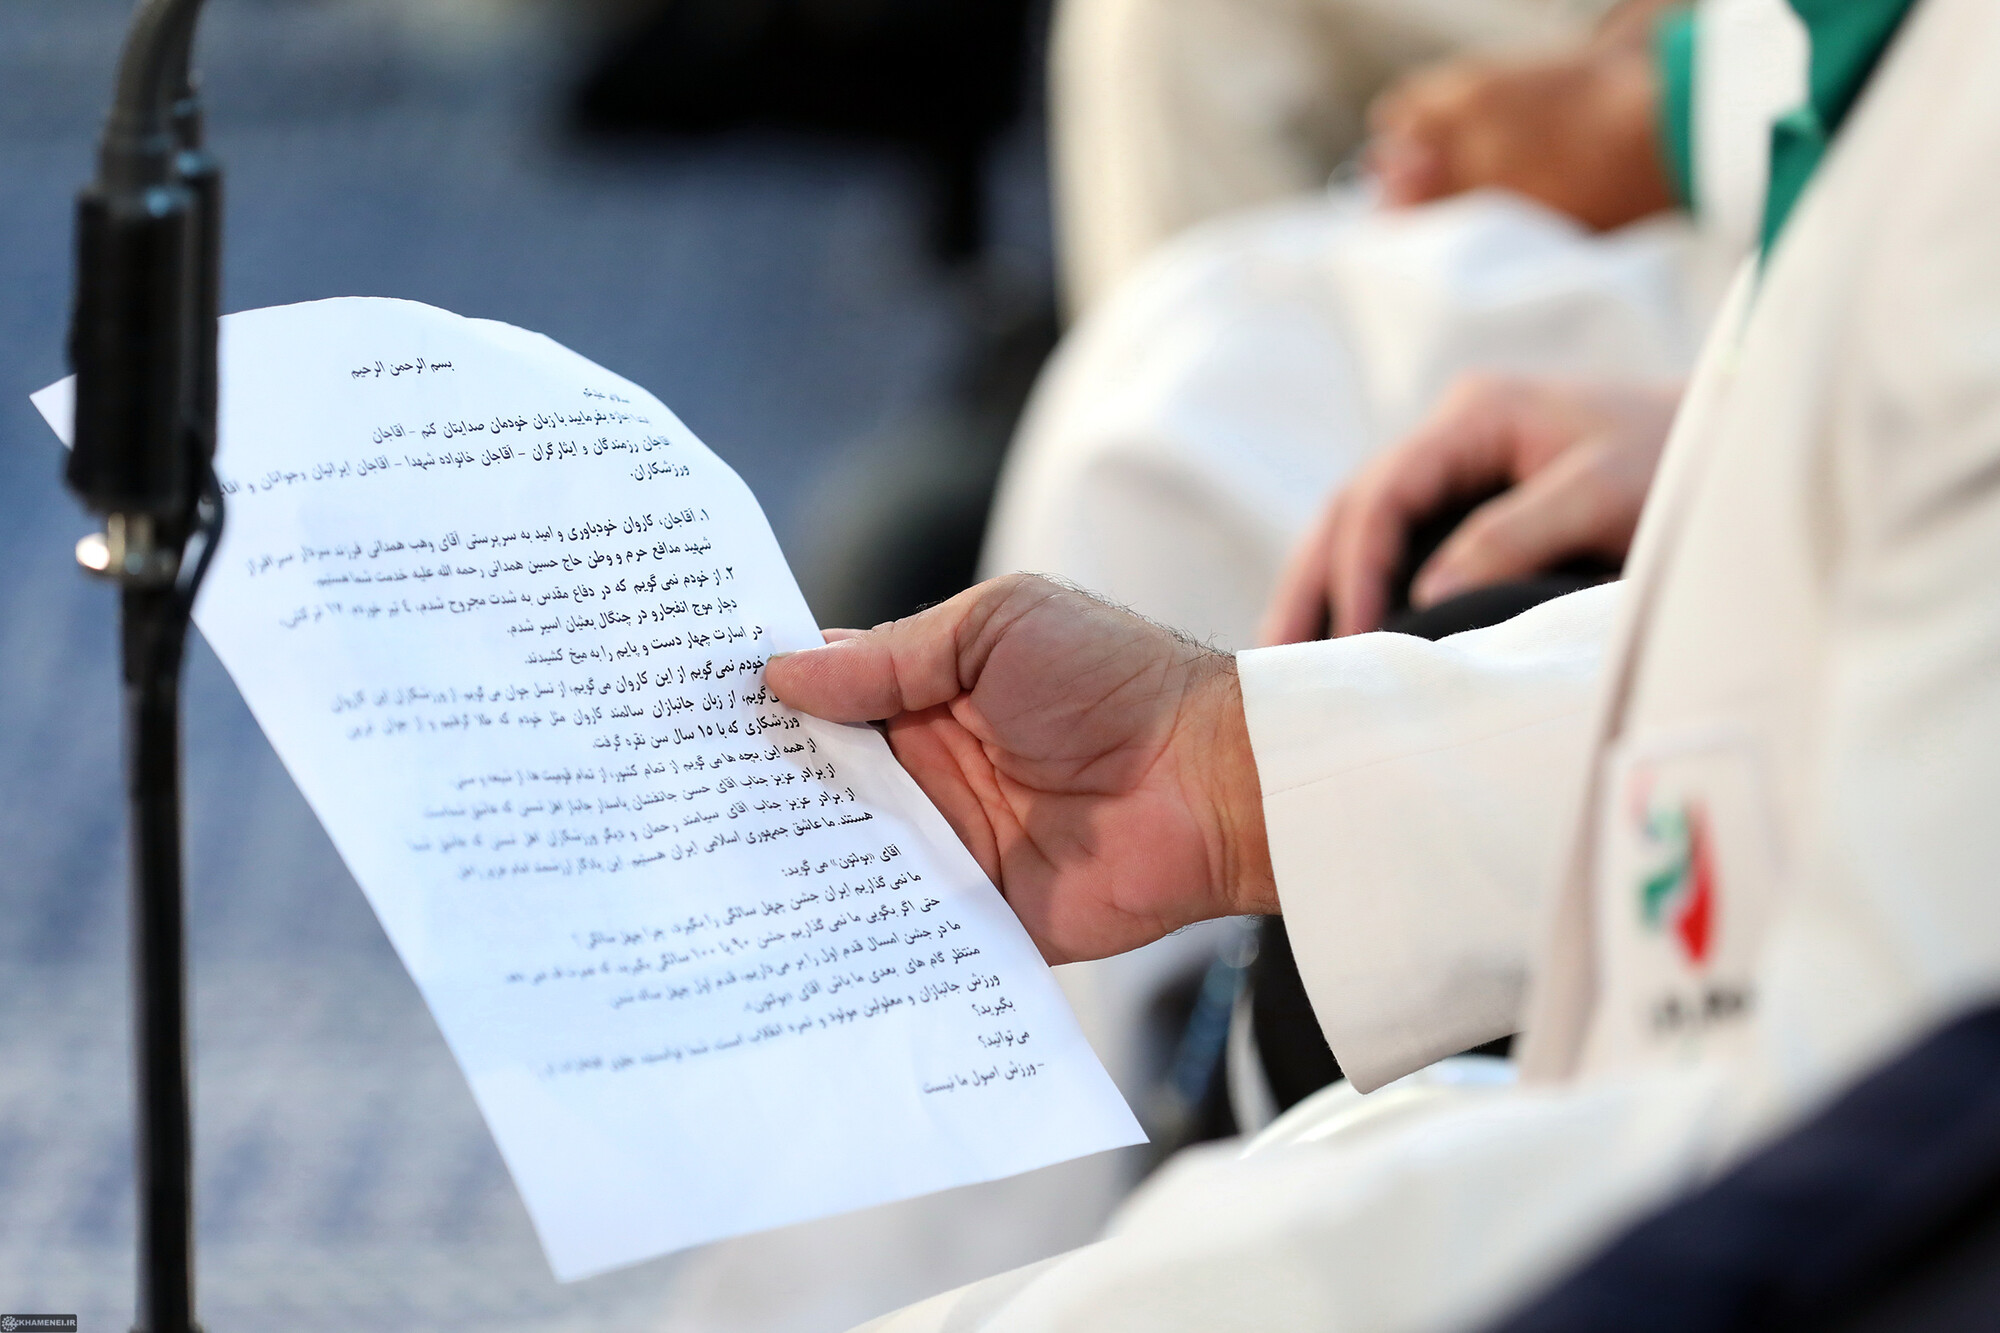 بسم الرحمن الرحیم
اجازه بفرمایید با زبان خودمان صدایتان کنم - آقاجان
آقاجان رزمندگان و ایثارگران - آقاجان خانواده شهدا - آقاجان ایرانیان و جوانان و
ورزشکاران.
۱. آقاجان، کاروان خودباوری و امید به سرپرستی آقای وهب همدانی فرزند سردار سرافراز
شهید مدافع حرم و وطن حاج حسین همدانی رحمه الله علیه خدمت شما هستیم.
۲. از خودم نمی گویم که در دفاع مقدس به شدت مجروح شدم، ٤ تیر خوردم،
دچار موج انفجار و در چنگال بعثیان اسیر شدم.
در اسارت چهار دست و پایم را به میخ کشیدند.
خودم نمی گویم از این کاروان می گویم، از نسل جوان می گویم از ورزشکاران این کاروان
می گویم، از زبان جانبازان سالمند کاروان مثل خودم که طلا گرفتیم و از جوان ترین
ورزشکاری که با ۱۵ سال سن نقره گرفت.
از همه این بچه ها می گویم از تمام کشور، از تمام قومیت ها، از شیعه و سنی
از برادر عزیز جناب آقای حسن جانفشان پاسدار جانباز اهل تسنن که عاشق شماست
از برادر عزیز جناب آقای سیامند رحمان و دیگر ورزشکاران اهل تسنن که عاشق شما
هستند. ما عاشق جمهوری اسلامی ایران هستیم. این یادگار ارزشمند امام
آقای «بولتون» می گوید:
ما نمی گذاریم ایران جشن چهل سالگی را بگیرد، چرا چهل سالگی؟
حتی اگر بگویی ما نمی گذاریم جشن ۹۰ یا ۱۰۰ سالگی بگیرید که
ما در جشن امسال قدم اول را بر می داریم، قدم اول چهل ساله
منتظر گام های بعدی ما باش آقای «بولتون».
ورزش جانبازان و معلولین مولود و ثمره انقلاب است. شما
بگیرید؟
می توانید؟
- ورزش اصول ما نیست
KHAMENEI.IR